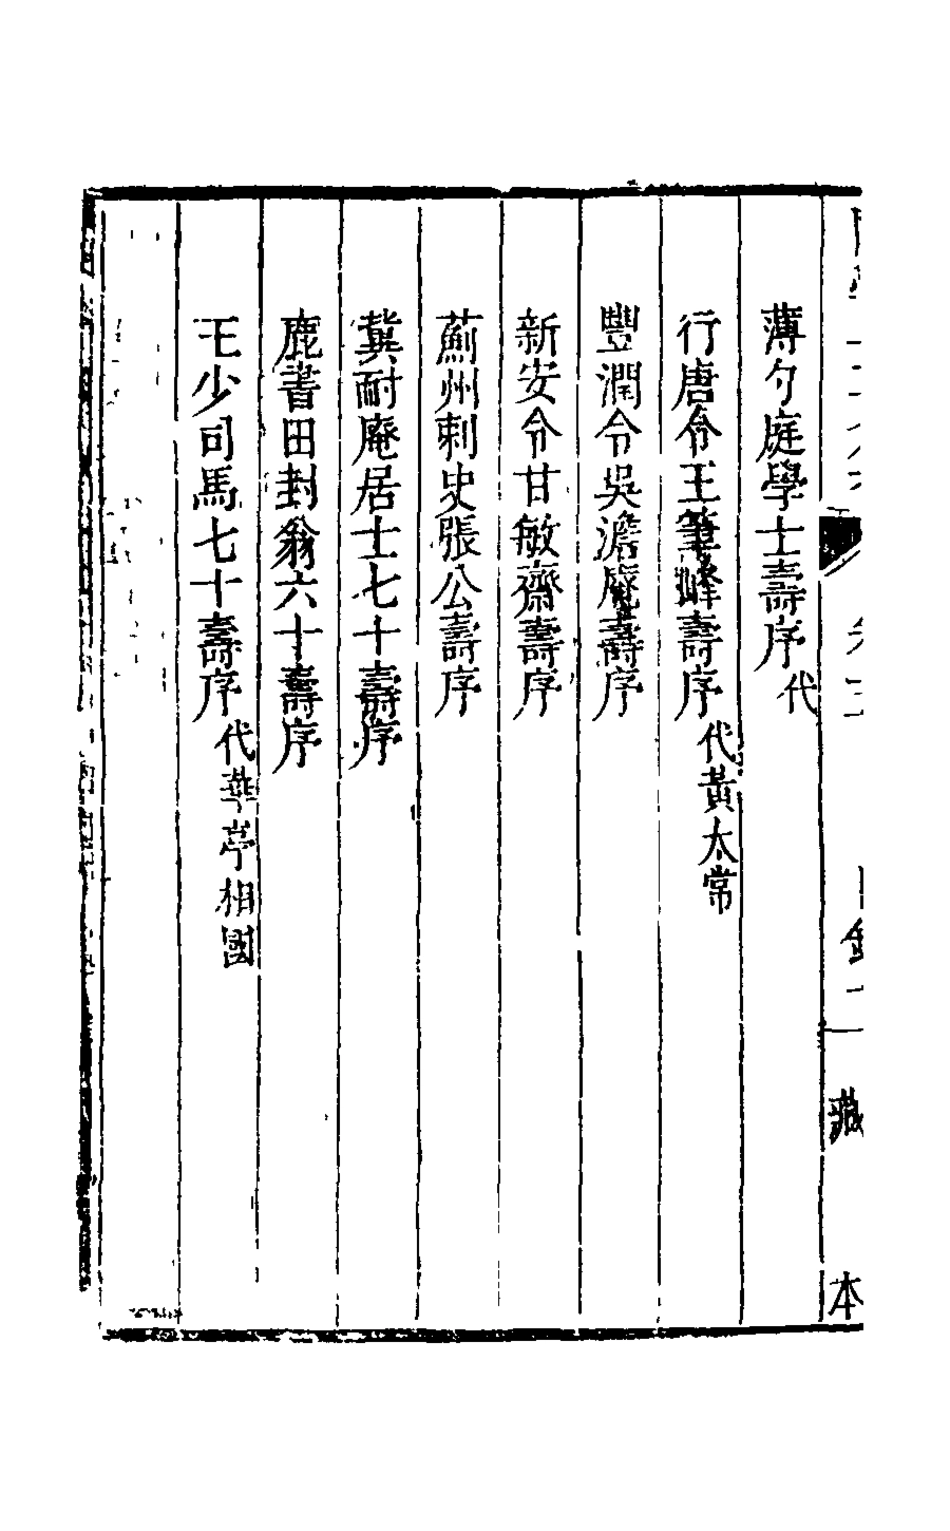 薄勺庭學士壽序代
行唐令王筆峰壽序代黃太常
豐潤令吳澹庵壽序
新安令甘敏齋壽序
薊州刺史張公壽序
冀耐庵居士七十壽序
鹿書田封翁六十壽序
王少司馬七十壽序代華亭相國
藏
本